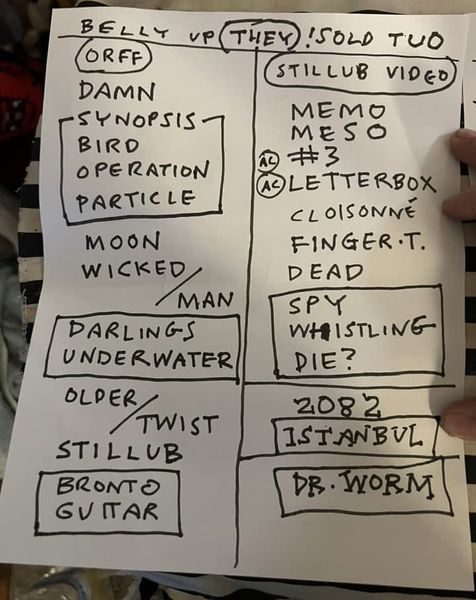 BELLY UP THEY! SOLD TUO
ORFF
DAMN
SYNOPSIS
BIRD
OPERATION
PARTICLE
MOON
WICKED/
MAN
DARLINGS
UNDERWATER
OLDER/
TWIST
STILLUB
BRONTO
GUITAR
STILLUB VIDEO
MEMO
MESO
AC #3
AC LETTERBOX
CLOISONNÉ
FINGER.T.
DEAD
SPY
WHISTLING
DIE?
2082
ISTANBUL
DR. WORM